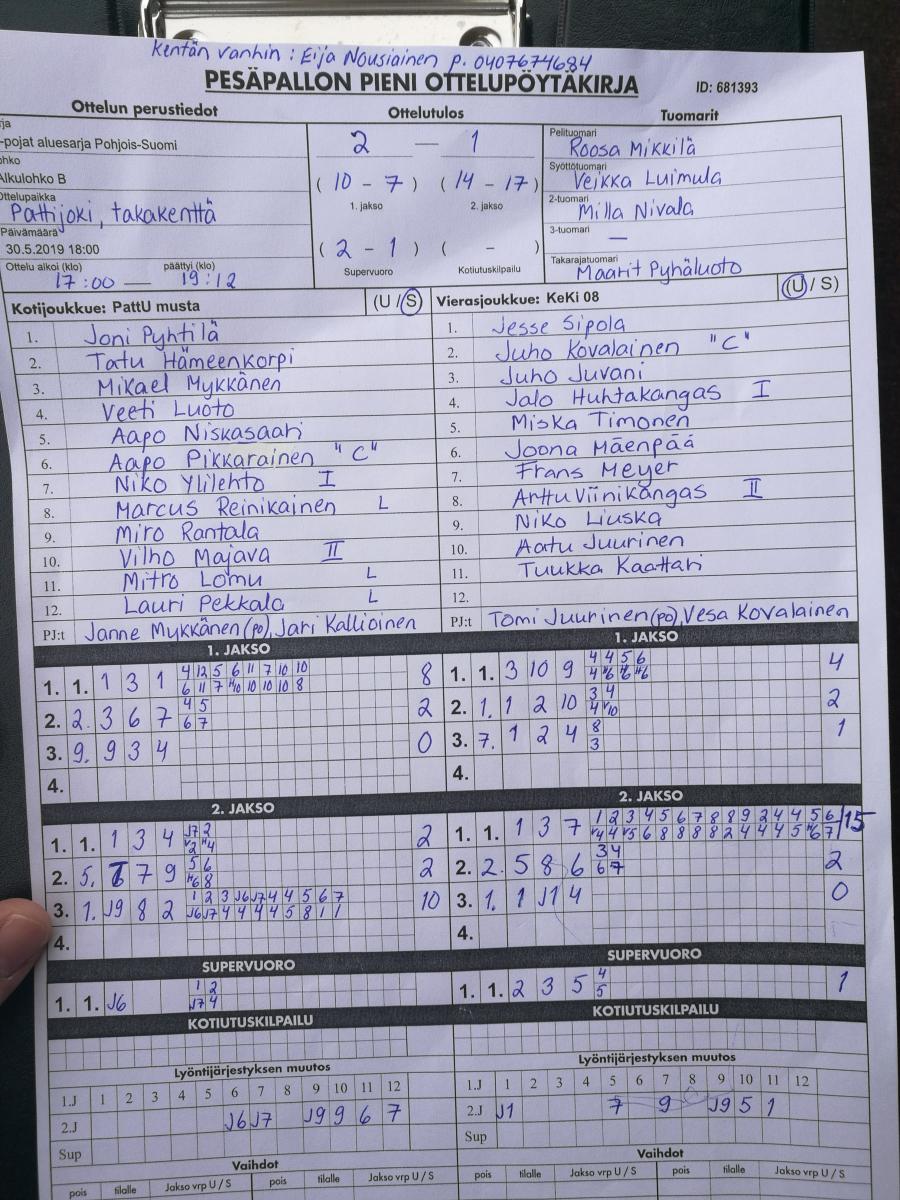 Kentän vanhin : Eija Nousiainen p. 0407674684
PESÄPALLON PIENI OTTELUPÖYTÄKIRJA ID: 681393
Ottelun perustiedot Ottelutulos Tuomarit
rja
-pojat aluesarja Pohjois-Suomi
ohko
Alkulohko B
Ottelupaikka
Pattijoki, takakenttä
Päivämäärä
30.5.2019 18:00
Ottelu alkoi (klo) päättyi (klo)
17:00 — 19:12
2 — 1
( 10 - 7 ) ( 14 - 17 )
1. jakso 2. jakso
( 2 - 1 ) ( - )
Supervuoro Kotiutuskilpailu
Pelituomari
Roosa Mikkilä
Syöttötuomari
Veikka Luimula
2-tuomari
Milla Nivala
3-tuomari
—
Takarajatuomari
Maarit Pyhäluoto
Kotijoukkue: PattU musta (U / S)
1. Joni Pyhtilä
2. Tatu Hämeenkorpi
3. Mikael Mykkänen
4. Veeti Luoto
5. Aapo Niskasaari
6. Aapo Pikkarainen "C"
7. Niko Ylilehto I
8. Marcus Reinikainen L
9. Miro Rantala
10. Vilho Majava II
11. Mitro Lomu L
12. Lauri Pekkala L
PJ:t Janne Mykkänen (po), Jari Kallioinen
Vierasjoukkue: KeKi 08 (U / S)
1. Jesse Sipola
2. Juho Kovalainen "C"
3. Juho Juvani
4. Jalo Huhtakangas I
5. Miska Timonen
6. Joona Mäenpää
7. Frans Meyer
8. Arttu Viinikangas II
9. Niko Liuska
10. Aatu Juurinen
11. Tuukka Kaattari
12.
PJ:t Tomi Juurinen (po), Vesa Kovalainen
1. JAKSO
4 12 5 6 11 7 10 10
1. 1. 1 3 1 8
2. 2. 3 6 7 2
4 5
6 7
3. 9. 9 3 4 0
4.
2. JAKSO
1. 1. 1 3 4 2
2. 5. 7 9 2
5 6
3. 1. J9 8 2 10
1 2 3 J6 J7 4 4 5 6 7
J6 J7 4 4 4 4 5 8 1 1
4.
SUPERVUORO
1. 1. J6
1 2
J7 4
KOTIUTUSKILPAILU
Lyöntijärjestyksen muutos
1.J 1 2 3 4 5 6 7 8 9 10 11 12
2.J J6 J7 J9 9 6 7
Sup
Vaihdot
pois tilalle Jakso vrp U / S pois tilalle Jakso vrp U / S
1. JAKSO
1. 1. 3 10 9 4
4 4 5 6
2. 1. 1 2 10 2
3 4
3. 7. 1 2 4 1
8
3
4.
2. JAKSO
1. 1. 1 3 7 15
1 2 3 4 5 6 7 8 8 9 2 4 4 5 6
2. 2. 5 8 6 2
3 4
6 7
3. 1. 1 J1 4 0
4.
SUPERVUORO
1. 1. 2 3 5 1
4
5
KOTIUTUSKILPAILU
Lyöntijärjestyksen muutos
1.J 1 2 3 4 5 6 7 8 9 10 11 12
2.J J1 7 9 J9 5 1
Sup
Vaihdot
pois tilalle Jakso vrp U / S pois tilalle Jakso vrp U / S